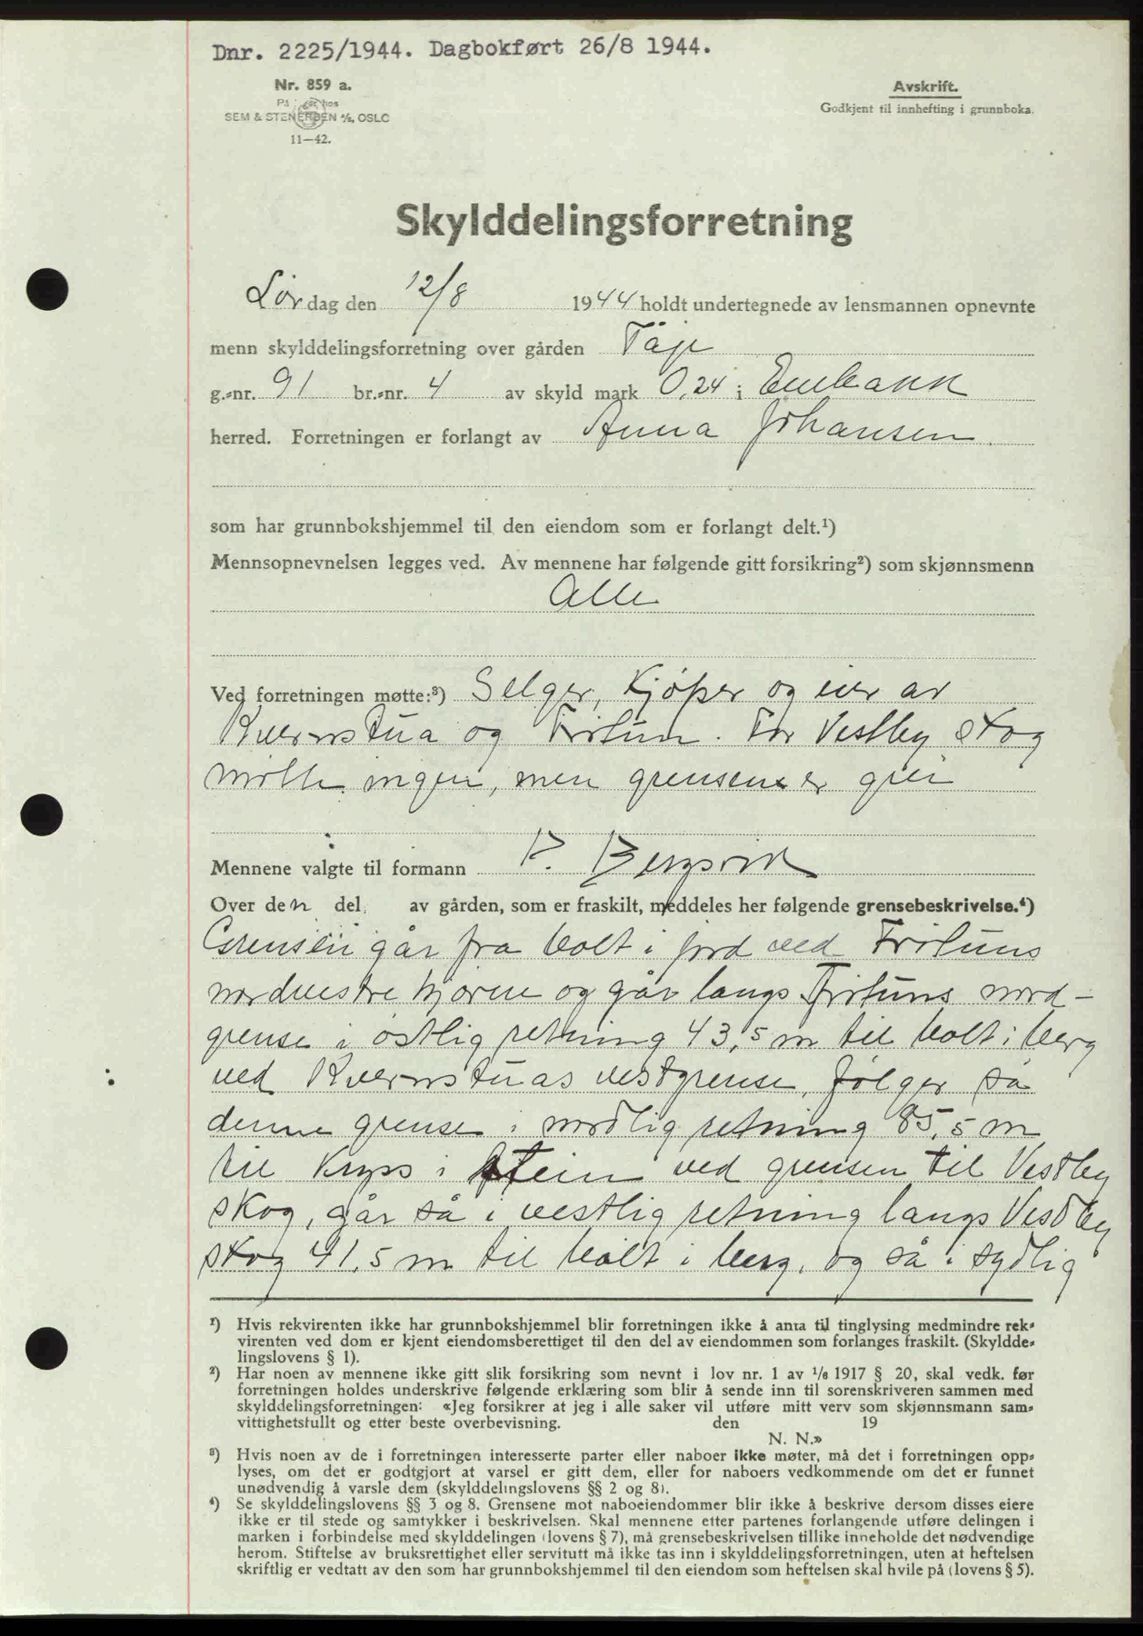 Dnr. 2225/1944. Dagbokført 26/8 1944.
Nr. 859 a.
På hos
SEM & STENERSEN A/S, OSLO
11—42.
Avskrift.
Godkjent til innhefting i grunnboka.
Skylddelingsforretning
Lørdag den 12/8 1944 holdt undertegnede av lensmannen opnevnte
menn skylddelingsforretning over gården Täje
g.-nr. 91 br.-nr. 4 av skyld mark 0,24 i Enebakk
herred. Forretningen er forlangt av Anna Johansen.
som har grunnbokshjemmel til den eiendom som er forlangt delt.¹)
Mennsopnevnelsen legges ved. Av mennene har følgende gitt forsikring²) som skjønnsmenn
Alle
Ved forretningen møtte:³) Selger, Kjøper og eier av
Kvernstua og Fritun. For Vestby skog
møtte ingen, men grensene er grei
Mennene valgte til formann P. Bergsvik
Over den del av gården, som er fraskilt, meddeles her følgende grensebeskrivelse.⁴)
Grensen går fra bolt i jord ved Frituns
nordvestre hjørne og går langs Frituns nord-
grense i østlig retning 43,5 m til bolt i berg
ved Kvernstuas vestgrense, følger så
denne grense i nordlig retning 85,5 m
til kryss i stein ved grensen til Vestby
skog, går så i vestlig retning langs Vestby
skog 41,5 m til bolt i berg, og så i sydlig
¹) Hvis rekvirenten ikke har grunnbokshjemmel blir forretningen ikke å anta til tinglysing medmindre rek-
virenten ved dom er kjent eiendomsberettiget til den del av eiendommen som forlanges fraskilt. (Skyldde-
lingslovens § 1).
²) Har noen av mennene ikke gitt slik forsikring som nevnt i lov nr. 1 av 1/6 1917 § 20, skal vedk. før
forretningen holdes underskrive følgende erklæring som blir å sende inn til sorenskriveren sammen med
skylddelingsforretningen: «Jeg forsikrer at jeg i alle saker vil utføre mitt verv som skjønnsmann sam-
vittighetsfullt og etter beste overbevisning. den 19
N. N.»
³) Hvis noen av de i forretningen interesserte parter eller naboer ikke møter, må det i forretningen opp-
lyses, om det er godtgjort at varsel er gitt dem, eller for naboers vedkommende om det er funnet
unødvendig å varsle dem (skylddelingslovens §§ 2 og 8).
⁴) Se skylddelingslovens §§ 3 og 8. Grensene mot naboeiendommer blir ikke å beskrive dersom disses eiere
ikke er til stede og samtykker i beskrivelsen. Skal mennene etter partenes forlangende utføre delingen i
marken i forbindelse med skylddelingen (lovens § 7), må grensebeskrivelsen tillike inneholde det nødvendige
herom. Stiftelse av bruksrettighet eller servitutt må ikke tas inn i skylddelingsforretningen, uten at heftelsen
skriftlig er vedtatt av den som har grunnbokshjemmel til den eiendom som heftelsen skal hvile på (lovens § 5).